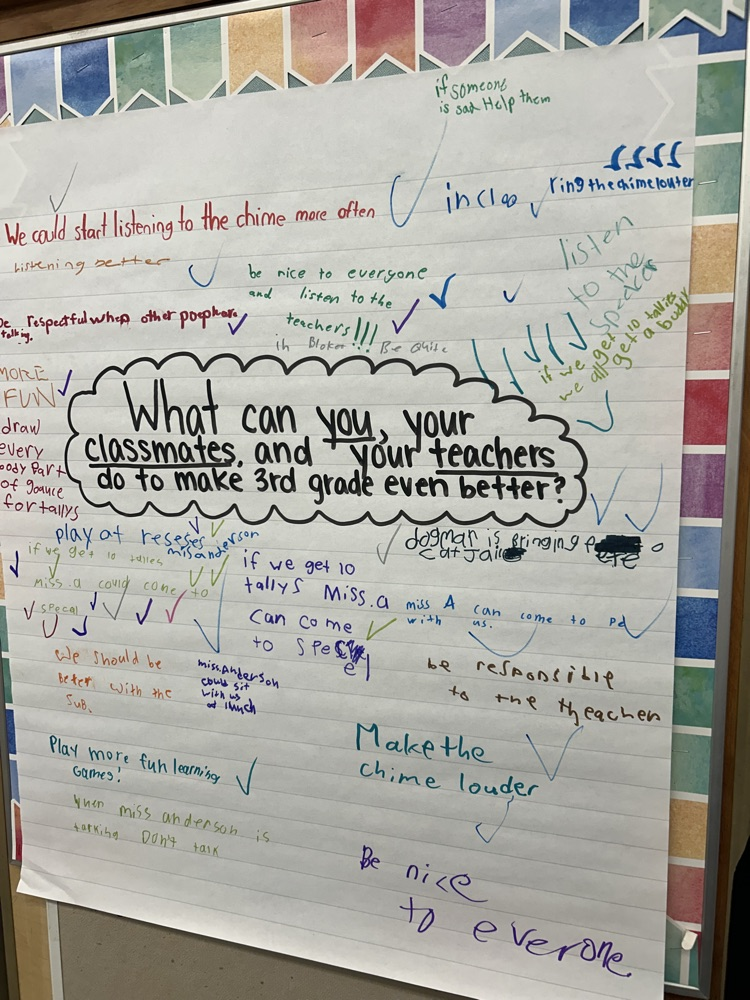 if someone
is sad Help them
ring the chime louter
We could start listening to the chime more often
Listening better
be nice to everyone
and listen to the
teachers!!!
listen
to the
speaker
if we get 10 tallies
we all get a buddy
respectful when other
talking.
in Bloker Be Quite
MORE
FUN
draw
every
part
of
for tallys
What can you, your
classmates, and your teachers
do to make 3rd grade even better?
play at reseses
if we get 10 tallies
miss.a could come to
specal
if we get 10
tallys Miss.a
can come
to
dogmar is Bringing
cat
miss A can come to pd
with us.
We should be
beter with the
sub.
miss.Anderson
could sit
with us
at lunch
be responsible
to the theacher
Play more fun learning
games!
Make the
chime louder
when miss anderson is
talking Don't talk
Be nice
to everone